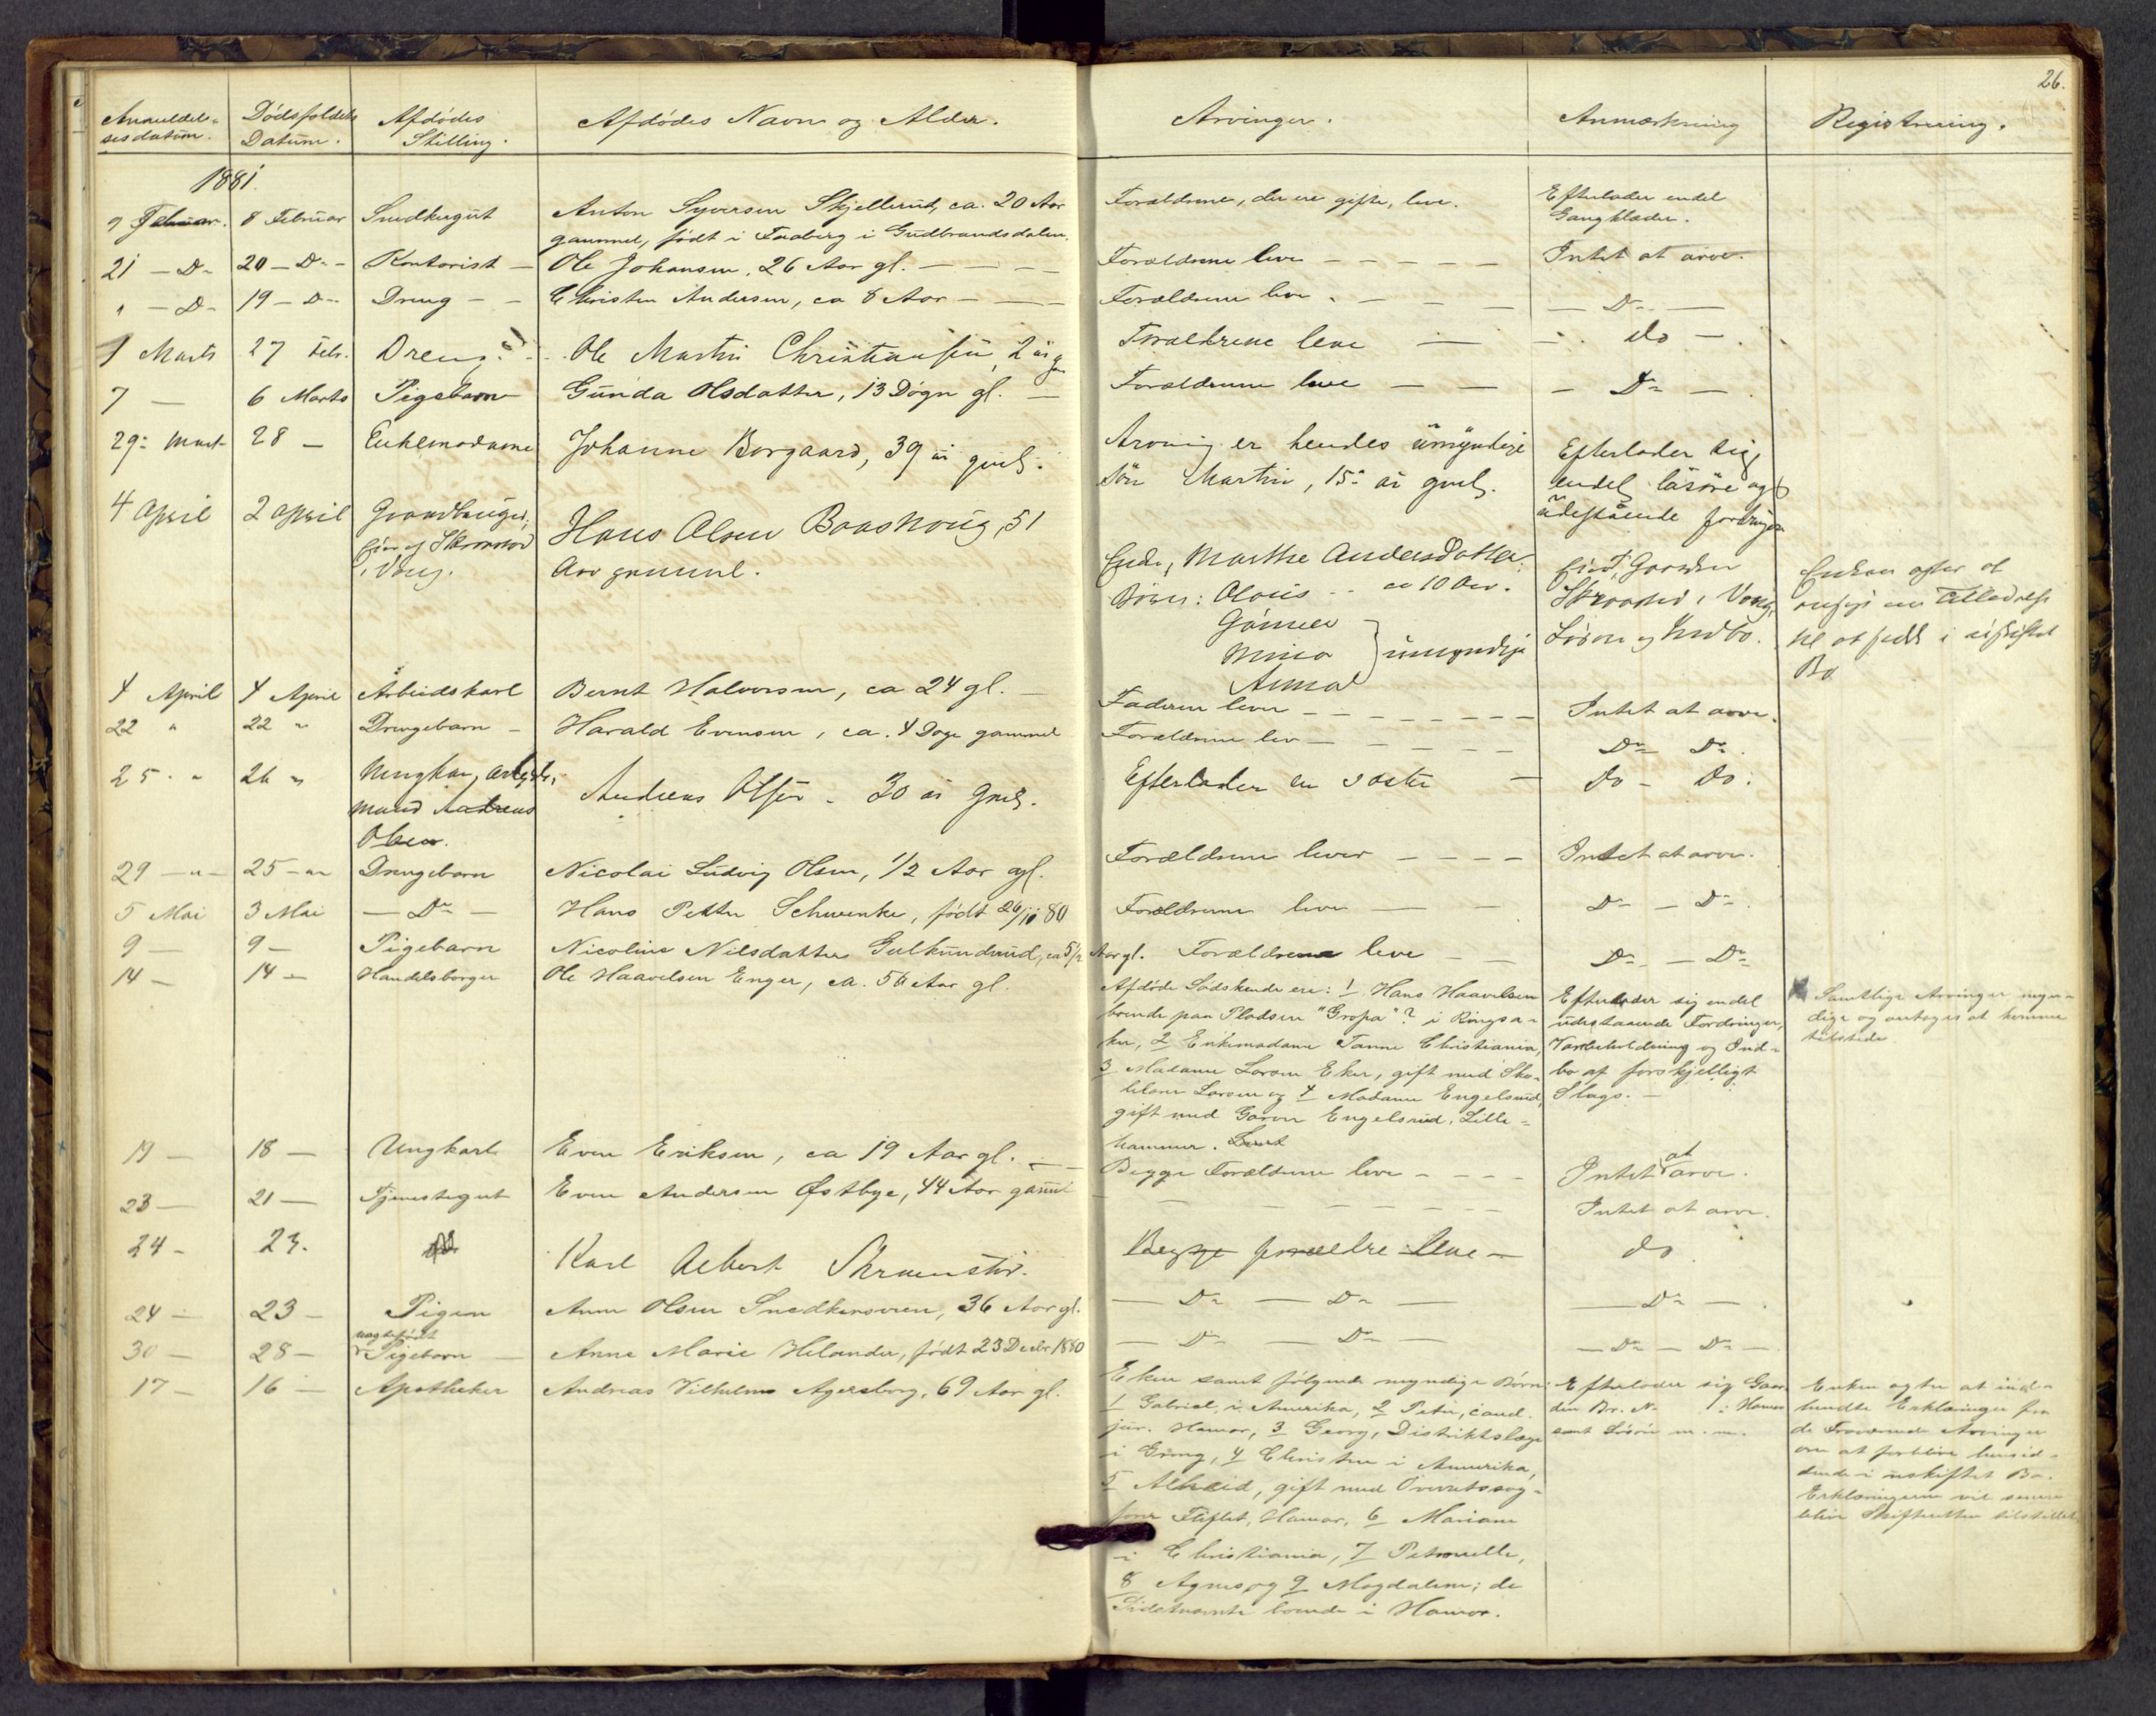 26.
Anmeldel-
sesdatum.
Dödsfaldets
Datum.
Afdödes
Stilling.
Afdödes Navn og Alder.
Arvinger.
Anmærkning
Registrering.
1881.
9 Februar. 8 Februar Snedkergut Anton Syversen Skjellerud, ca. 20 Aar Forældrene, der ere gifte, leve. Efterlader endel
gammel, født i Faaberg i Gudbrandsdalen. Gangklæder.
21 — Do 20 — Do — Kontorist — Ole Johansen, 26 Aar gl. — — — Forældrene leve — — — — — Intet at arve.
" — Do 19 — Do Dreng — — Christen Andersen, ca 8 Aar — — — Forældrene leve — — — — Do —
1 Marts 27 Febr. Dreng Ole Martin Christiansen, 2 år Forældrene leve — — do —
7 — 6 Marts Pigebarn Gunda Olsdatter, 13 Døgn gl. — Forældrene leve — — — Do —
29: Mart 28 — Enkemadame Johanne Borgaard, 39 år Arving er hendes umyndige Efterlader sig
søn Martin, 15 år endel løsøre og
udestående fordringer
4 April 2 April Hans Olsen 51 Enke, Marthe Andersdatter. Gaarden Enken agter at
Aar gammel. Børn: ca 10 Aar.
i Vang. Løsøre og Indbo. til at i uskiftet
Mina } umyndige Bo
Anna
4 April 4 April Arbeidskarl Bernt Halvorsen, ca 24 gl. — Faderen lever — — — — — — — Intet at arve.
22 " 22 " Drengebarn — Harald Evensen, ca. 4 Dage gammel Forældrene lev — — — — — Do Do
25. " 26 " Ungkar, Andreas Olsen — 30 år Efterlader en søster — do — do.
mand Andreas
Olsen.
29 — " — 25 — " Drengebarn Nicolai Ludvig Olsen, 1/2 Aar gl. Forældrene lever — — — — Intet at arve.
5 Mai 3 Mai — Do — Hans Petter Schwenke, født 26/10 80 Forældrene leve — — Do — Do
9 — 9 — Pigebarn Nicoline Nilsdatter ca 5 1/2 Aar gl. Forældrene leve — — Do — Do
14 — 14 — Handelsborger Ole Haavelsen Enger, ca. 56 Aar gl. Afdøde Sødskende ere: 1 Hans Haavelsen Efterlader sig endel Samtlige Arvinger myn-
boende paa Pladsen "Gropa"? i Ringsa- udestaaende Fordringer, dige og antages at komme
ker, 2 Enkemadame Tanne Christiania, Varebeholdning og Ind- tilstede
3 Madame Larsen Eker, gift med Sko- bo af forskjelligt
Larsen og 4 Madame Engelsrud, Slags. —
gift med Garver Engelsrud, Lille-
hammer.
19 — 18 — Ungkarl Even Eriksen, ca 19 Aar gl. — — Begge Forældrene leve — — — Intet at arve.
23 — 21 — Tjenestegut Even Andersen Østbye, 44 Aar gammel — — — — — — Intet at arve.
24 — 23. Karl Albert Begge forældre leve — do
24 — 23 — Pigen Anne Olsen 36 Aar gl. — Do — Do — — Do —
30 — 28 — Pigebarn — Anne Marie Helander, født 23 Decbr 1880 — Do — Do — — Do — Do —
17 — 16 — Apotheker Andreas Vilhelm Agersborg, 69 Aar gl. Enken samt følgende myndige Børn: Efterlader sig Gaar- Enken agter at ind-
1 Gabriel, i Amerika, 2 Peter, cand. den Br. No 1 i Hamar hendte Erklæringer fra
jur. Hamar, 3 Georg, Distriktslæge samt Løsøre m. m. de Arvinger
i Grong, 4 Christen i Amerika, om at forblive hensid-
5 Alheid, gift med Overretssag- dende i uskiftet Bo.
fører Hamar, 6 Mariane Erklæringerne vil senere
i Christiania, 7 Petronelle, blive Skifteretten tilstillet
8 Agnes og 9 Magdalene; de
Sidstnævnte boende i Hamar.